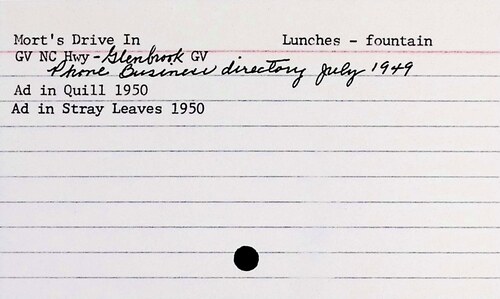 Mort's Drive In Lunches - fountain
GV NC Hwy - Glenbrook GV
Phone Business directory July 1949
Ad in Quill 1950
Ad in Stray Leaves 1950